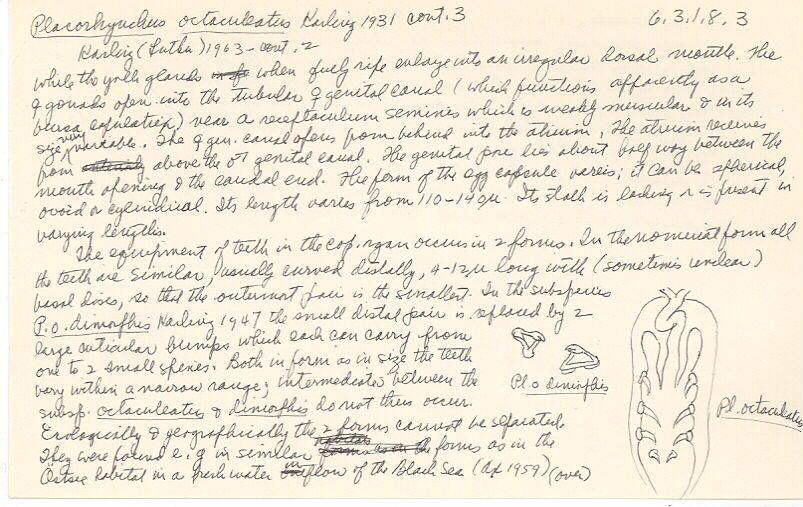 Placorhynchus octaculeatus Karling 1931 cont. 3
6.3.1.8.3
Karling (Luther) 1963 - cont. 2
while the yolk glands when fully ripe enlarge into an irregular dorsal mantle. The
♀ gonads open into the tubular ♀ genital canal (which functions apparently as a
bursa copulatrix) near a receptaculum seminis which is weakly muscular & in its
size very variable. The ♀ gen. canal opens from behind into the atrium, the atrium receives
from above the ♂ genital canal. The genital pore lies about half way between the
mouth opening & the caudal end. The form of the egg capsule varies; it can be spherical,
ovoid or cylindrical. Its length varies from 110-140µ. Its stalk is lacking or is present in
varying lengths.
The equipment of teeth in the cop. organ occurs in 2 forms. In the nominal form all
the teeth are similar, usually curved distally, 4-12µ long with (sometimes unclear)
basal discs, so that the outermost pair is the smallest. In the subspecies
P. o. dimorphis Karling 1947 the small distal pair is replaced by 2
large cuticular bumps which each can carry from
one to 2 small spines. Both in form as in size the teeth
vary within a narrow range; intermediates between the
subsp. octaculeatus & dimorphis do not thus occur.
Ecologically & geographically the 2 forms cannot be separated.
They were found e.g. in similar forms as in the
Östsee habitat in a fresh water inflow of the Black Sea (Ax 1959) (over)
Pl. o dimorphis
Pl. octaculeatus